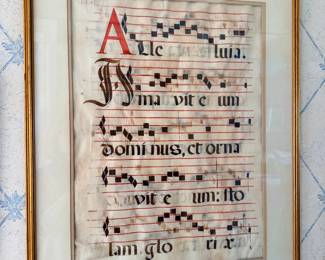 Alle luia.
Ama vit e um
domi nus, et orna
vit e um: sto
lam glo ri æ